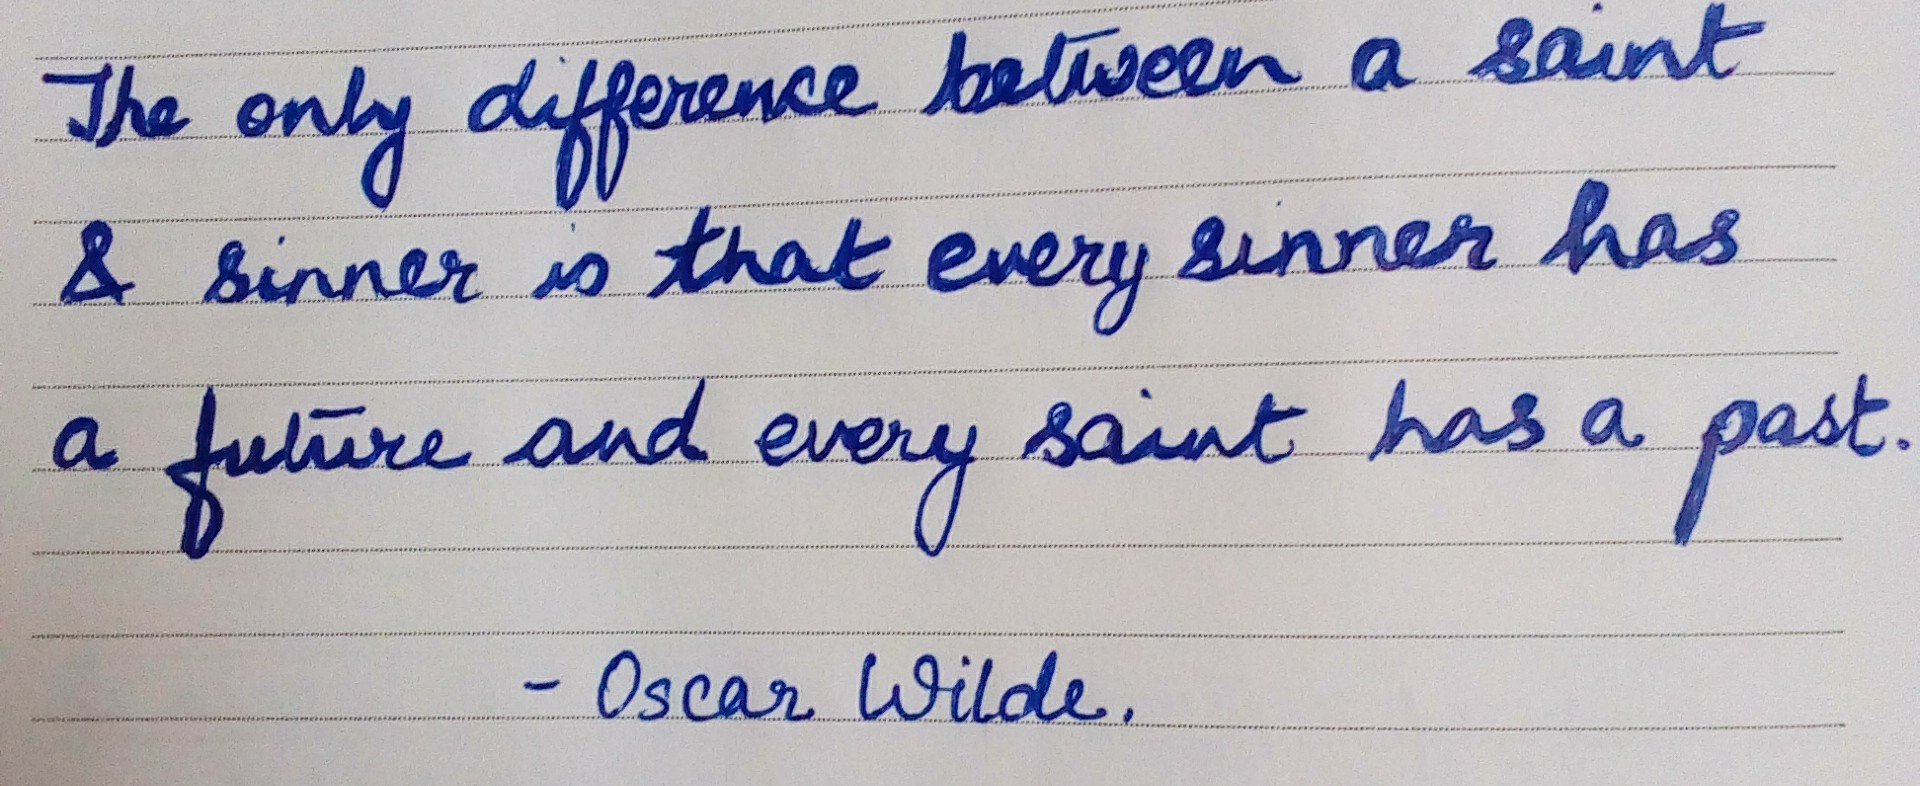 The only difference between a saint
& sinner is that every sinner has
a future and every saint has a past.
- Oscar Wilde.